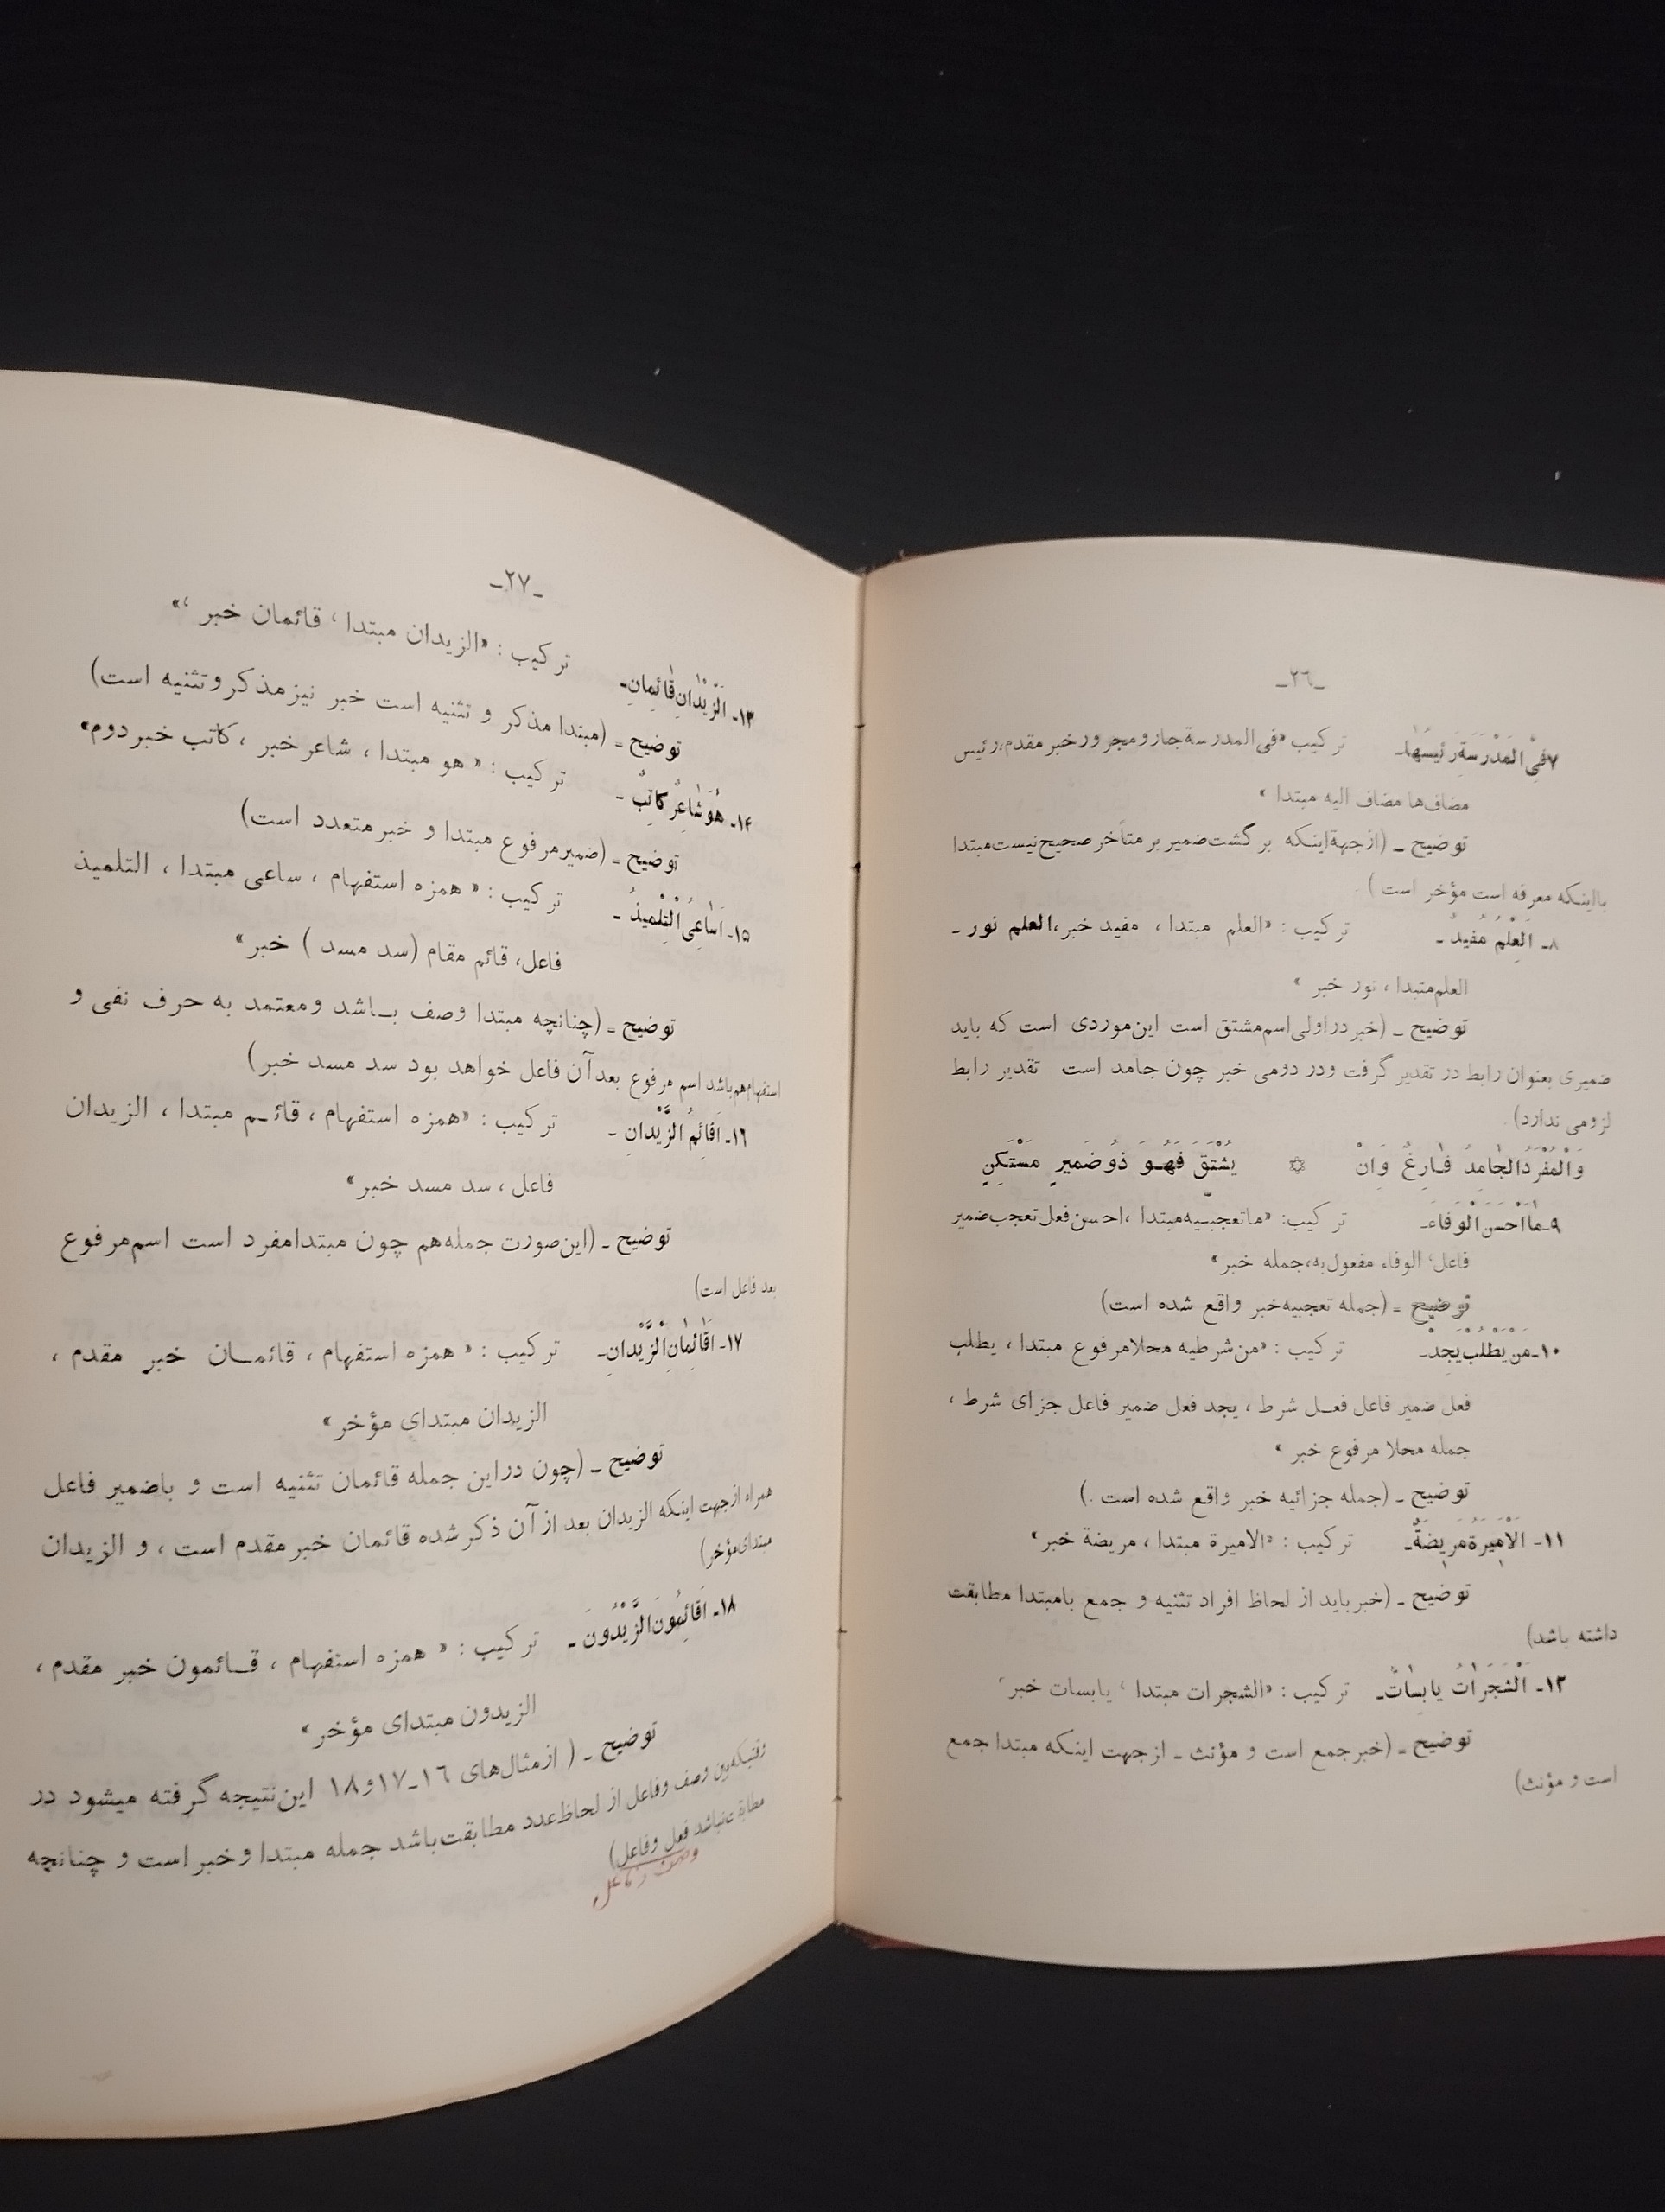 ـ٢٦ـ
٧ـ فِی الْمَدْرَسَةِ رَئیسُهٰا ـ ترکیب «فی المدرسة جار و مجرور خبر مقدم، رئیس
مضاف ها مضاف الیه مبتدا »
توضیح ـ (از جهة اینکه بر گشت ضمیر بر متأخر صحیح نیست مبتدا
با اینکه معرفه است مؤخر است ) .
٨ـ اَلْعِلْمُ مُفیدٌ ـ ترکیب : «العلم مبتدا ، مفید خبر، العلم نور ـ
العلم متبدا ، نور خبر »
توضیح ـ (خبر در اولی اسم مشتق است این موردی است که باید
ضمیری بعنوان رابط در تقدیر گرفت ودر دومی خبر چون جامد است تقدیر رابط
لزومی ندارد) .
وَالْمُفْرَدُ الْجٰامِدُ فٰارِغٌ وَ اِنْ ۞ یُشْتَقَّ فَهُـوَ ذُو ضَمیرٍ مُسْتَکِنٍ
٩ـ مٰا اَحْسَنَ الْوَفٰاءَ ـ ترکیب: «ما تعجبـیه مبتدا ، احسن فعل تعجب ضمیر
فاعل، الوفاء مفعول به، جمله خبر»
توضیح ـ (جمله تعجبیه خبر واقع شده است)
١٠ـ مَنْ یَطْلُبْ یَجِدْ ـ ترکیب : «من شرطیه محلا مرفوع مبتدا ، یطلب
فعل ضمیر فاعل فعـل شرط ، یجد فعل ضمیر فاعل جزای شرط ،
جمله محلا مرفوع خبر »
توضیح ـ (جمله جزائیه خبر واقع شده است .)
١١ـ اَلْاَمیرَةُ مَریضَةٌ ـ ترکیب : «الامیرة مبتدا ، مریضة خبر»
توضیح ـ (خبر باید از لحاظ افراد تثنیه و جمع بامبتدا مطابقت
داشته باشد)
١٢ـ اَلْشَجَرٰاتُ یٰابِسٰاتٌ ـ ترکیب : «الشجرات مبتدا ، یابسات خبر»
توضیح ـ (خبر جمع است و مؤنث ـ از جهت اینکه مبتدا جمع
است و مؤنث)
ـ٢٧ـ
١٣ـ اَلزَّیْدٰانِ قٰائِمٰانِ ـ ترکیب : «الزیدان مبتدا ، قائمان خبر ،»
توضیح ـ (مبتدا مذکر و تثنیه است خبر نیز مذکر و تثنیه است)
١۴ـ هُوَ شٰاعِرٌ کٰاتِبٌ ـ ترکیب : « هو مبتدا ، شاعر خبر ، کاتب خبر دوم»
توضیح ـ (ضمیر مرفوع مبتدا و خبر متعدد است)
١٥ـ اَسٰاعِی اَلْتِلْمیذُ ـ ترکیب : « همزه استفهام ، ساعی مبتدا ، التلمیذ
فاعل، قائم مقام (سد مسد ) خبر»
توضیح ـ (چنانچه مبتدا وصف بـاشد و معتمد به حرف نفی و
استفهام هم باشد اسم مرفوع بعد آن فاعل خواهد بود سد مسد خبر)
١٦ـ اَقٰائِمُ الزَّیْدٰانِ ـ ترکیب : «همزه استفهام ، قائـم مبتدا ، الزیدان
فاعل ، سد مسد خبر»
توضیح ـ (این صورت جمله هم چون مبتدا مفرد است اسم مرفوع
بعد فاعل است)
١٧ـ اَقٰائِمٰانِ الْزَّیْدٰانِ ـ ترکیب : « همزه استفهام ، قائمـان خبر مقدم ،
الزیدان مبتدای مؤخر »
توضیح ـ (چون در این جمله قائمان تثنیه است و با ضمیر فاعل
همراه از جهت اینکه الزیدان بعد از آن ذکر شده قائمان خبر مقدم است ، و الزیدان
مبتدای مؤخر)
١٨ـ اَقٰائِمُونَ الزَّیْدُونَ ـ ترکیب : « همزه استفهام ، قـائمون خبر مقدم ،
الزیدون مبتدای مؤخر »
توضیح ـ ( از مثال های ١٦ـ١٧و١٨ این نتیجه گرفته میشود در
وقتیکه بین وصف و فاعل از لحاظ عدد مطابقت باشد جمله مبتدا و خبر است و چنانچه
مطابقت نباشد فعل و فاعل)
وصف و فاعل